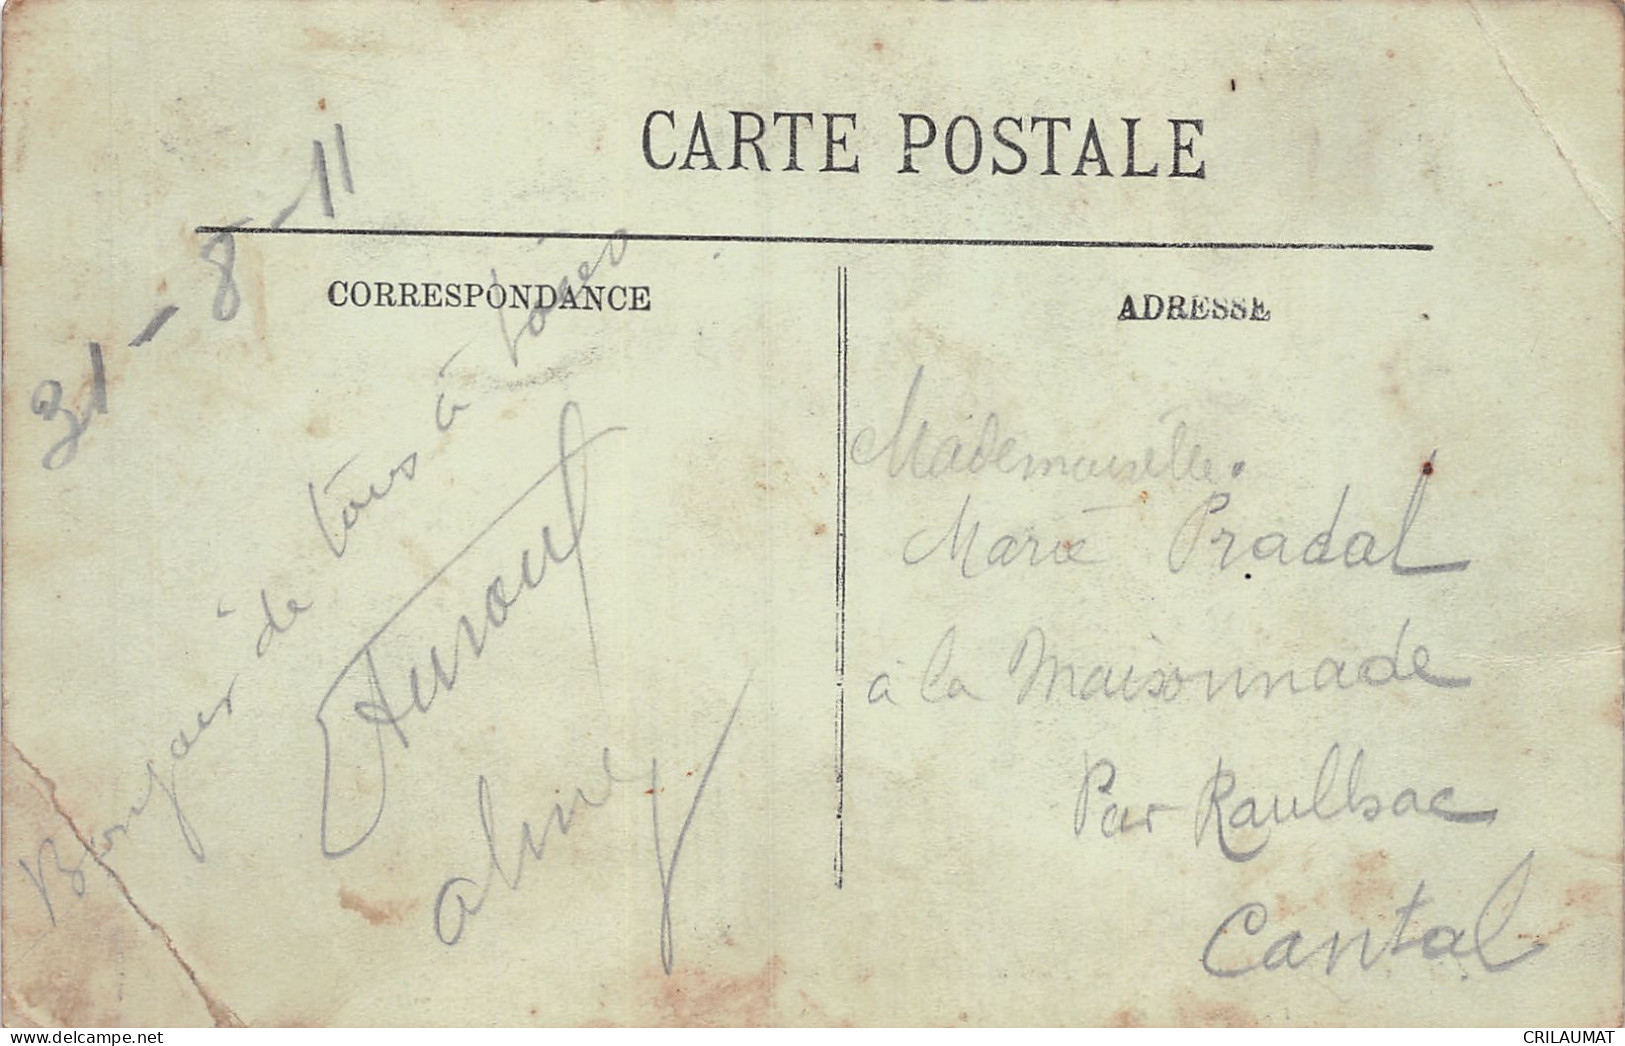 CARTE POSTALE
CORRESPONDANCE
ADRESSE
31-8-11
Bonjour de tous à tous
Mademoiselle.
Marie Pradal
à la Maisonnade
Par Raulhac
Cantal
www.delcampe.net
CRILAUMAT